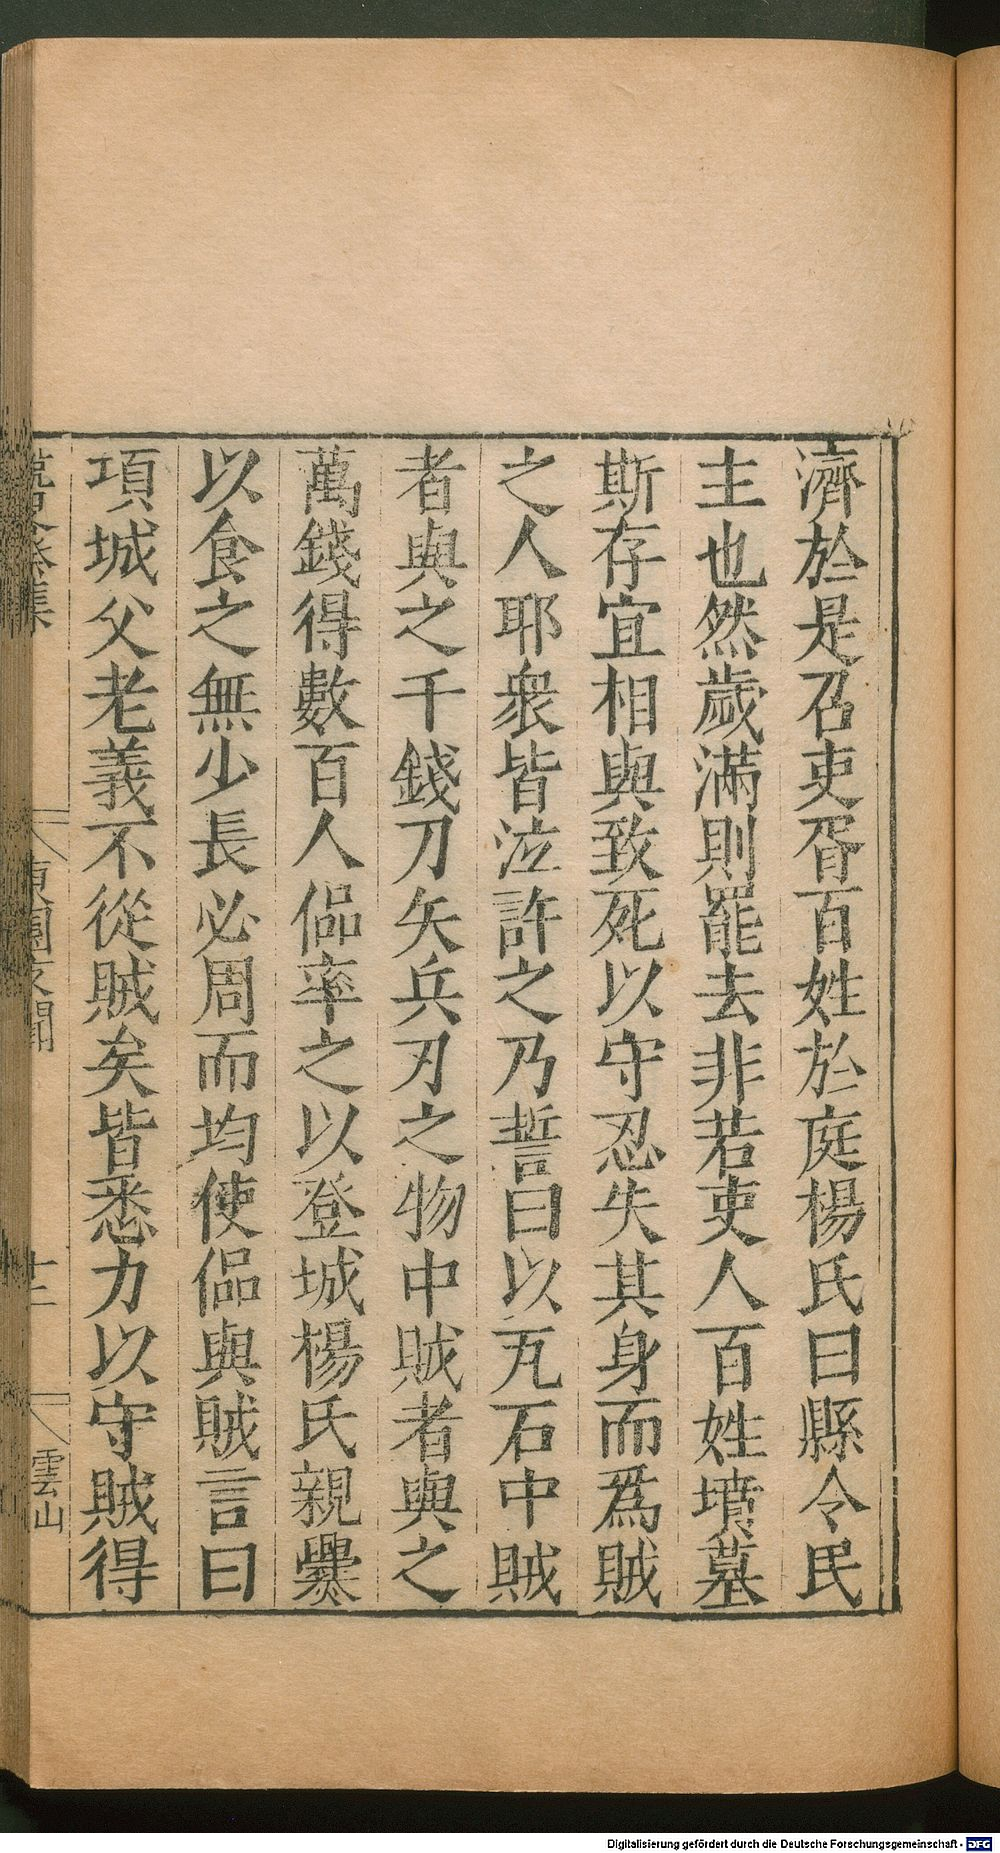 濟於是召吏胥百姓於庭楊氏曰縣令民
主也然歲滿則罷去非若吏人百姓墳墓
斯存宜相與致死以守忍失其身而爲賊
之人耶衆皆泣許之乃誓曰以瓦石中賊
者與之千錢刀矢兵刃之物中賊者與之
萬錢得數百人偘率之以登城楊氏親爨
以食之無少長必周而均使偘與賊言曰
項城父老義不從賊矣皆悉力以守賊得
集
十二
雲山
Digitalisierung gefördert durch die Deutsche Forschungsgemeinschaft - DFG